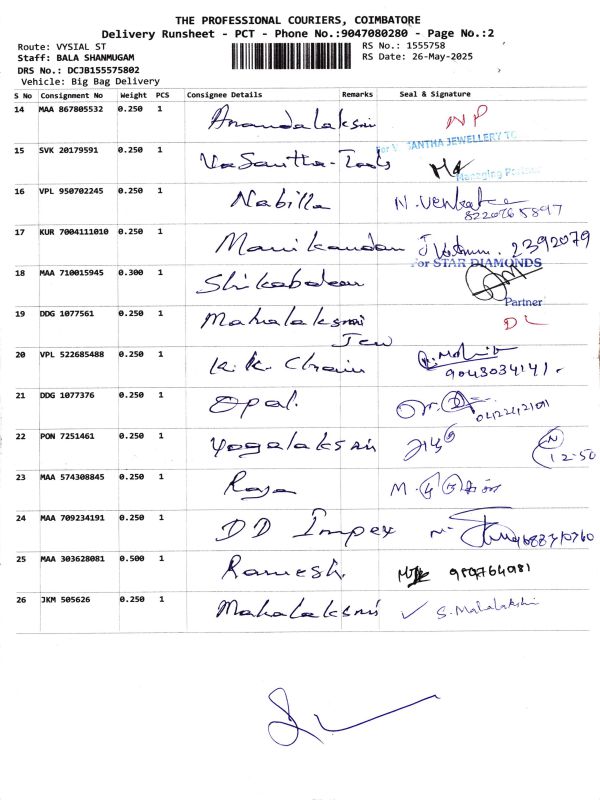 THE PROFESSIONAL COURIERS, COIMBATORE
Delivery Runsheet - PCT - Phone No.:9047080280 - Page No.:2
Route: VYSIAL ST
RS No.: 1555758
Staff: BALA SHANMUGAM
RS Date: 26-May-2025
DRS No.: DCJB155575802
Vehicle: Big Bag Delivery
S No Consignment No Weight PCS Consignee Details Remarks Seal & Signature
14 MAA 867805532 0.250 1 Anandalaksmi NP
15 SVK 20179591 0.250 1 Vasantha-Tools
ANTHA JEWELLERY TO
Managing Partner
16 VPL 950702245 0.250 1 Nabilla N. Venkat
17 KUR 7004111010 0.250 1 Manikandan 2392079
For STAR DIAMONDS
18 MAA 710015945 0.300 1
Partner
19 DDG 1077561 0.250 1 Mahalaksmi DL
Jew
20 VPL 522685488 0.250 1 K.K. Chain
9043034141.
21 DDG 1077376 0.250 1 Opal.
22 PON 7251461 0.250 1 Yogalaksmi
12-50
23 MAA 574308845 0.250 1 Raja
24 MAA 709234191 0.250 1 DD Impex
25 MAA 303628081 0.500 1 Ramesh.
26 JKM 505626 0.250 1 Mahalaksmi ✓ S. Mahalakshmi